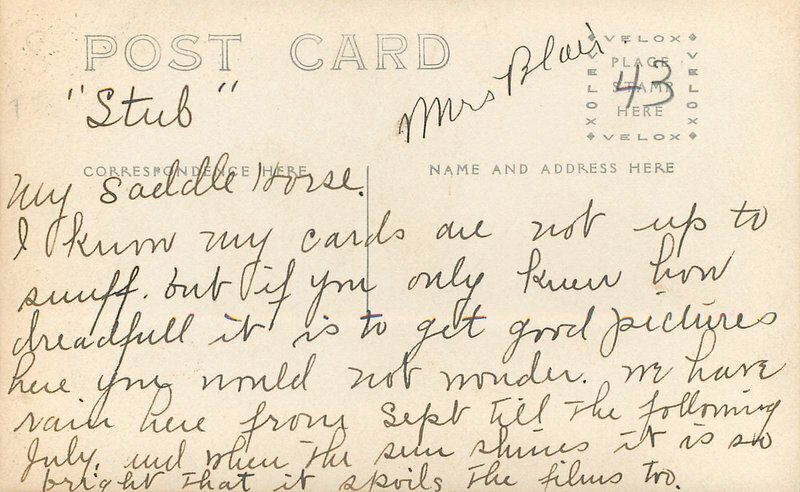 POST CARD
"Stub"
Mrs Blair.
VELOX
VELOX
VELOX
VELOX
PLACE
STAMP
HERE
43
CORRESPONDENCE HERE
NAME AND ADDRESS HERE
My Saddle Horse.
I know my cards are not up to
snuff. but if you only knew how
dreadfull it is to get good pictures
here you would not wonder. We have
rain here from Sept till the following
July. and when the sun shines it is so
bright that it spoils the films too.